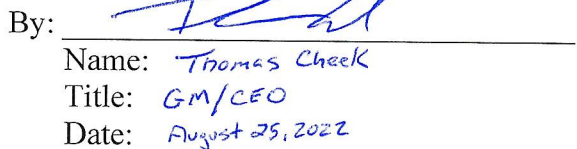 By:
Name: Thomas Cheek
Title: GM/CEO
Date: August 25, 2022